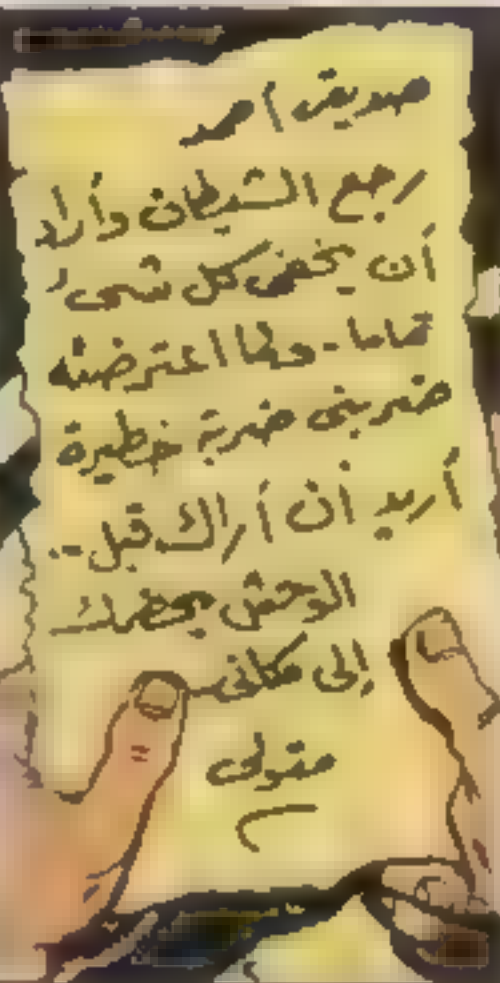 صديقى أحمد
رجع الشيطان وأراد
أن يخفى كل شىء
تماما - ولما اعترضته
ضربنى ضربة خطيرة
أريد أن أراك قبل..
الوحش يحضرك
إلى مكانى
متولى